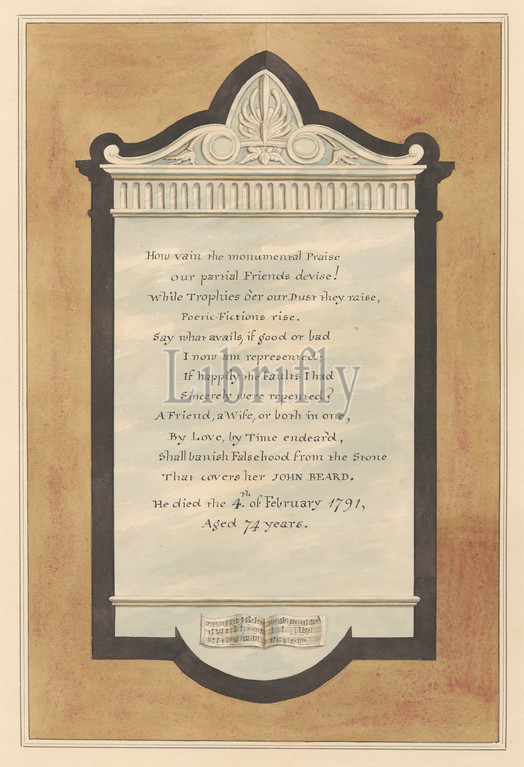 How vain the monumental Praise
our partial Friends devise!
While Trophies o'er our Dust they raise,
Poetic Fictions rise.
Say what avails, if good or bad
I now am represented?
If happily the Faults I had
Sincerely were repented?
Librifly
A Friend, a Wife, or both in one,
By Love, by Time endear'd,
Shall banish Falsehood from the Stone
That covers her JOHN BEARD.
He died the 4.th of February 1791,
Aged 74 years.